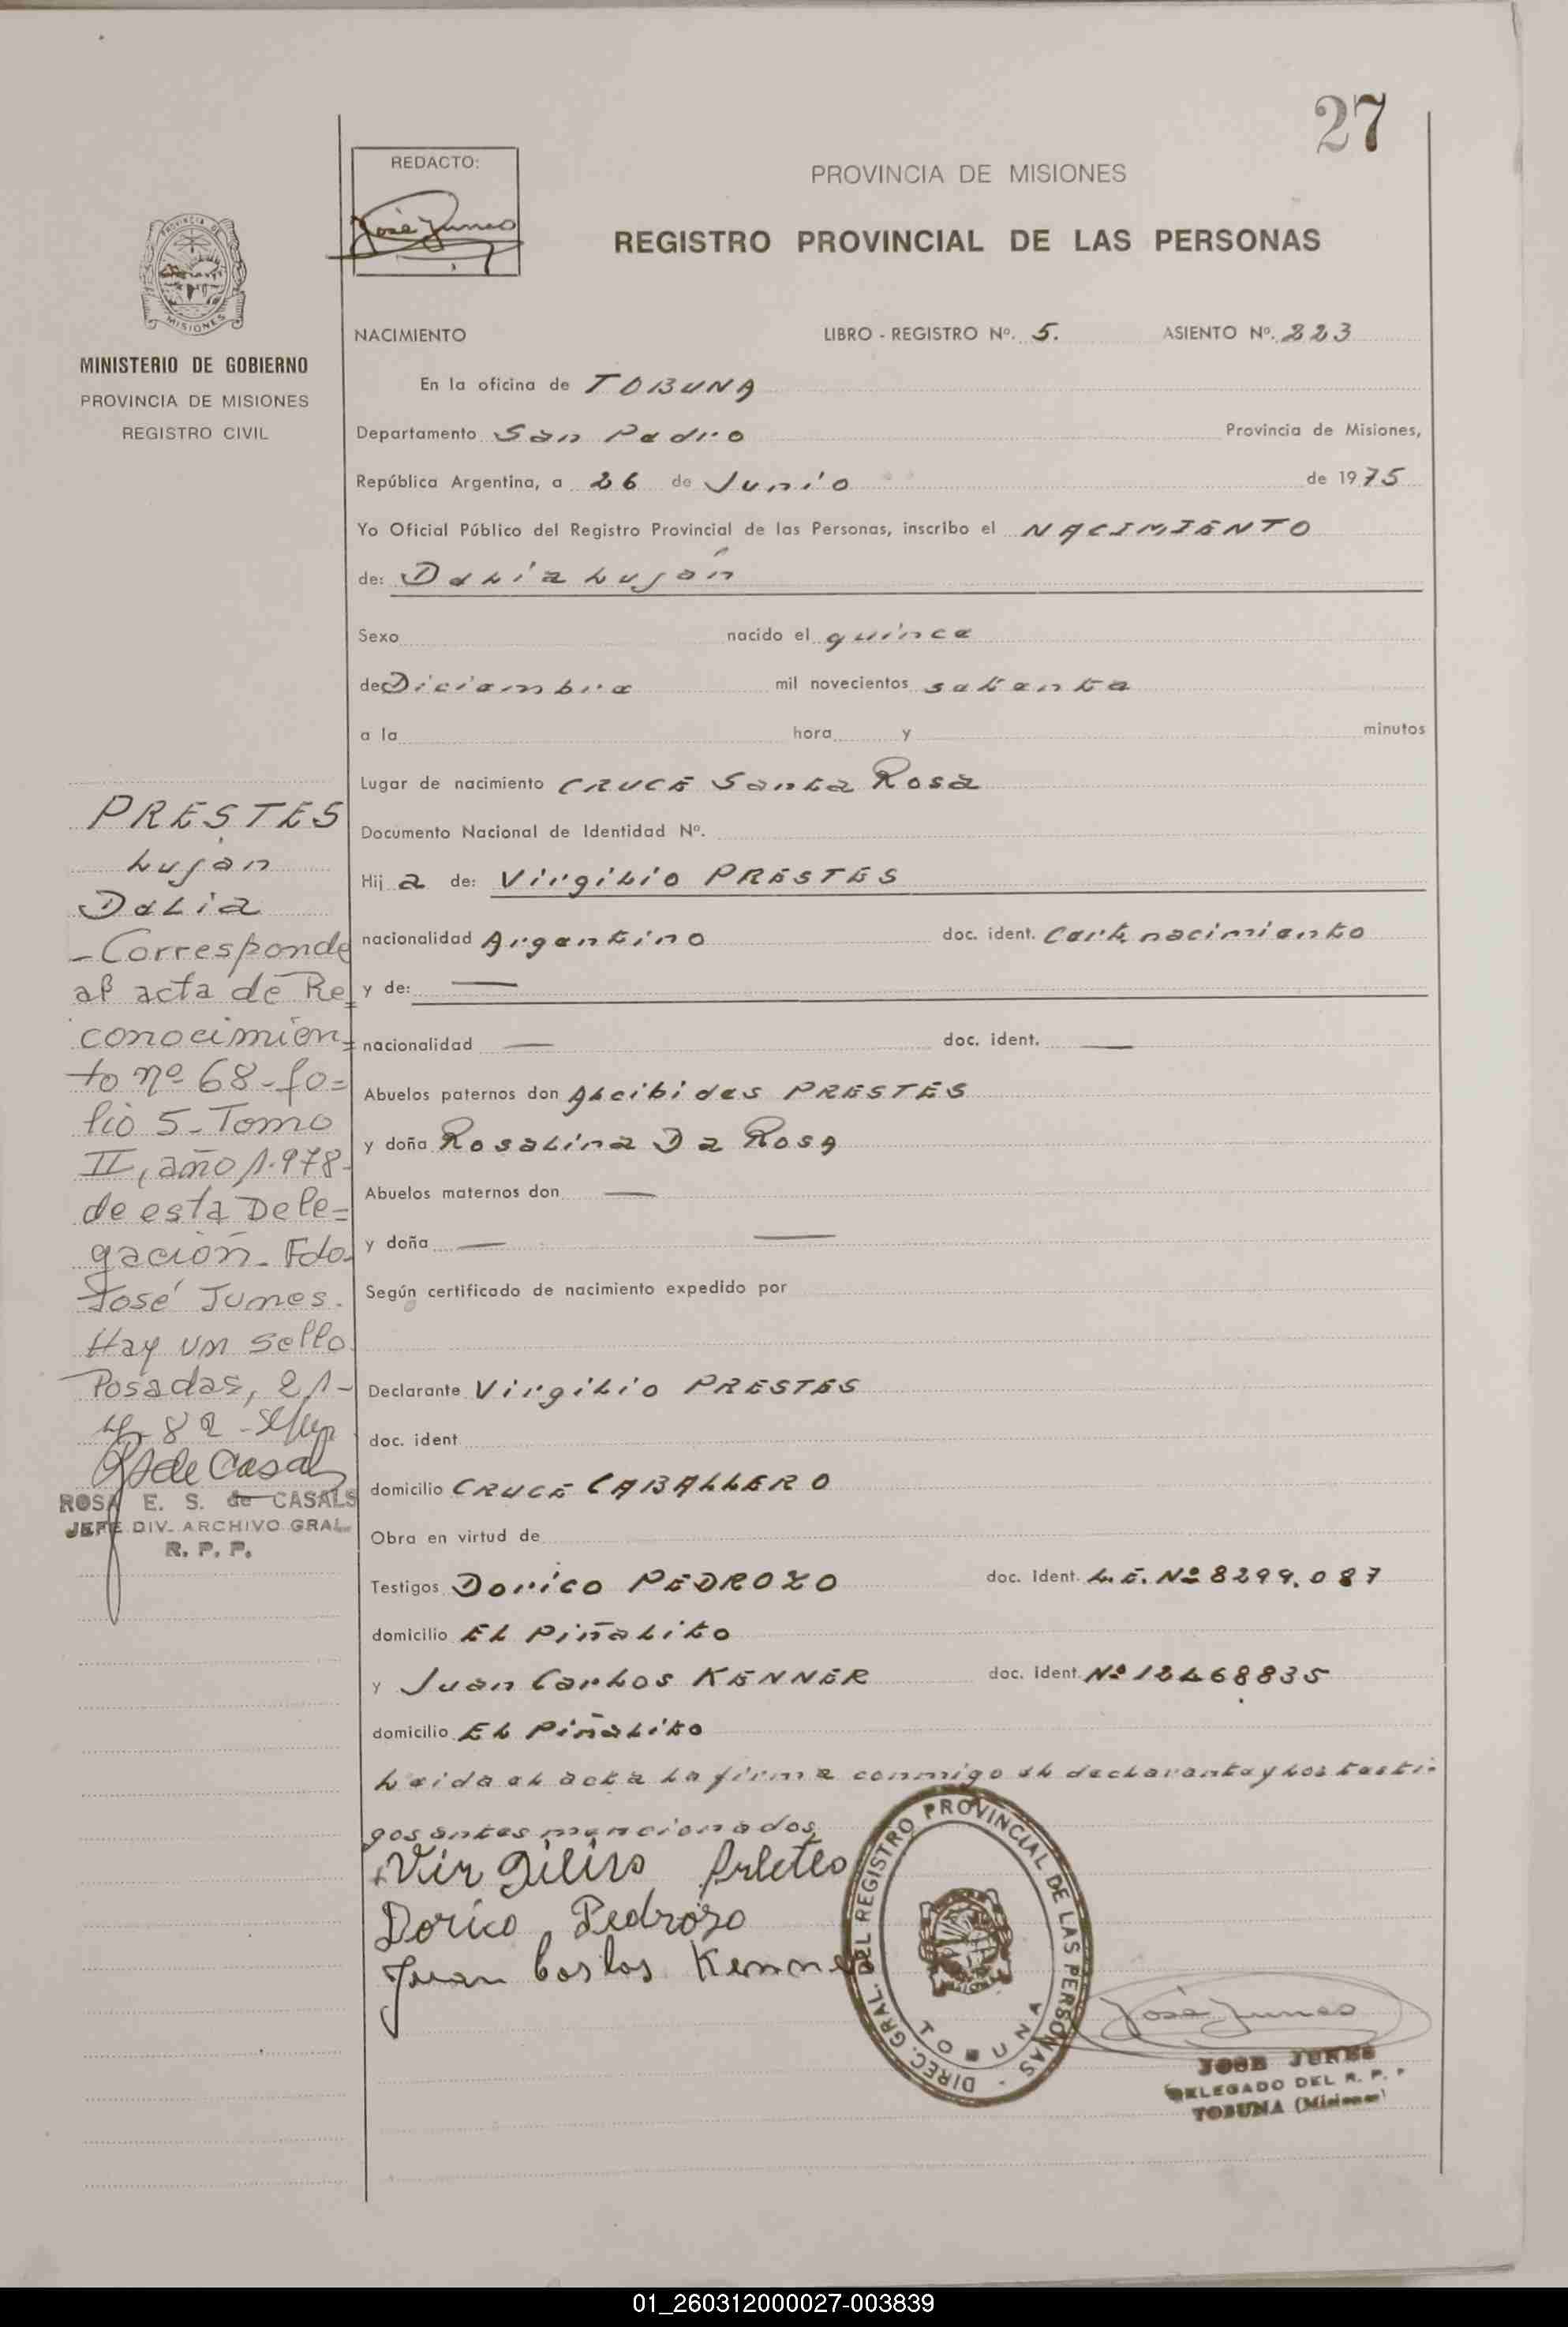 27
REDACTO:
José Junes
PROVINCIA DE MISIONES
REGISTRO PROVINCIAL DE LAS PERSONAS
PROVINCIA DE
MISIONES
MINISTERIO DE GOBIERNO
PROVINCIA DE MISIONES
REGISTRO CIVIL
NACIMIENTO LIBRO - REGISTRO Nº. 5. ASIENTO Nº. 223
En la oficina de TOBUNA
Departamento San Pedro Provincia de Misiones,
República Argentina, a 26 de Junio de 1975
Yo Oficial Público del Registro Provincial de las Personas, inscribo el NACIMIENTO
de: Dalia Luján
Sexo nacido el quince
de Diciembre mil novecientos setenta
a la hora y minutos
Lugar de nacimiento CRUCE Santa Rosa
Documento Nacional de Identidad Nº.
Hij a de: Virgilio PRESTES
nacionalidad Argentino doc. ident. Cert. nacimiento
y de: —
nacionalidad — doc. ident. —
Abuelos paternos don Alcibides PRESTES
y doña Rosalina Da Rosa
Abuelos maternos don —
y doña — —
Según certificado de nacimiento expedido por
Declarante Virgilio PRESTES
doc. ident
domicilio CRUCE CABALLERO
Obra en virtud de
Testigos Dorico PEDROZO doc. ident. L.E. Nº 8299.087
domicilio EL Piñalito
y Juan Carlos KENNER doc. ident. Nº 12468835
domicilio EL Piñalito
Leida el acta la firma conmigo el declarante y los testi-
gos antes mencionados
Dorico Pedrozo
Juan Carlos Kenner
DIREC. GRAL. DEL REGISTRO PROVINCIAL DE LAS PERSONAS -
TOBUNA
José Junes
JOSE JUNES
DELEGADO DEL R. P. P
TOBUNA (Misiones)
PRESTES
Luján
Dalia
- Corresponde
al acta de Re=
conocimien=
to nº 68 - fo=
lio 5 - Tomo
II, año 1.978-
de esta Dele=
gación. Fdo.
José Junes.
Hay un sello
Posadas, 21-
4-82
RS de Casals
ROSA E. S. de CASALS
JEFE DIV. ARCHIVO GRAL.
R. P. P.
01_260312000027-003839